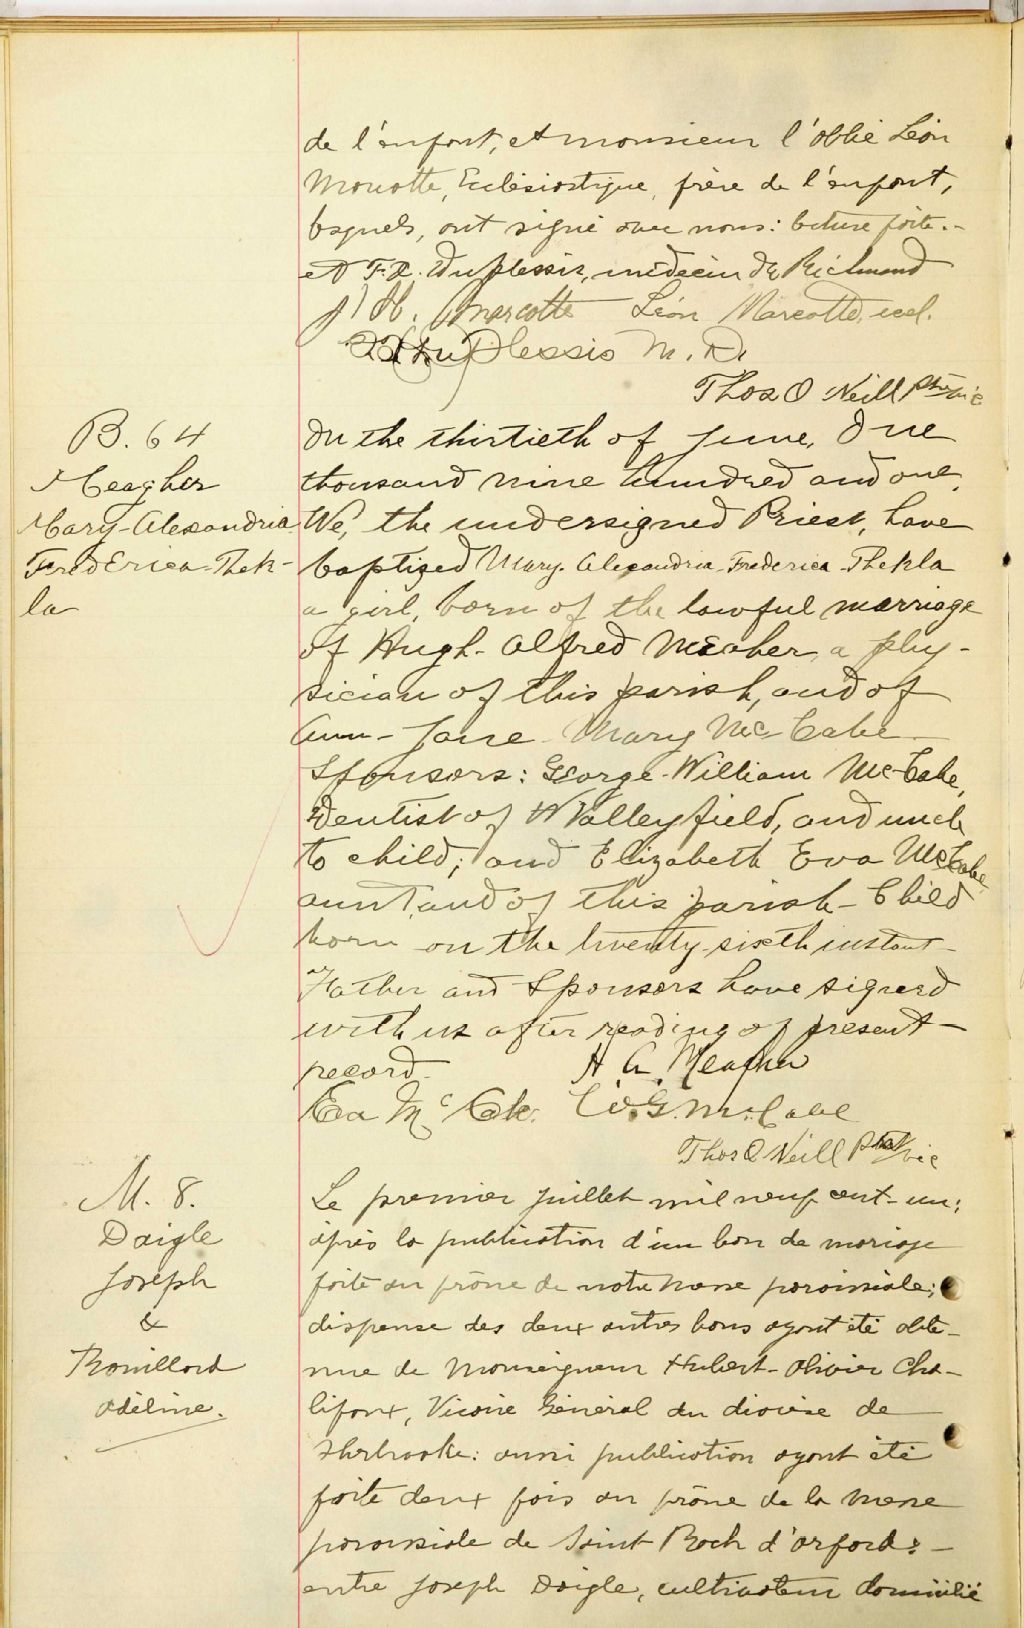 de l'enfant, et monsieur l'abbé Léon
Marcotte, Ecclésiastique, frère de l'enfant,
lesquels, ont signé avec nous: lecture faite.-
et F.X. Duplessis, médecin de Richmond
J H. Marcotte Léon Marcotte, eccl.
Duplessis M. D.
Thos O Neill Ptre vic
B. 64
Meagher
Mary-Alexandria
Frederica-Thek-
la
On the thirtieth of June, One
thousand nine hundred and one,
We, the undersigned Priest, have
baptized Mary-Alexandria-Frederica-Thekla
a girl, born of the lawful marriage
of Hugh-Alfred Meagher, a phy-
sician of this parish, and of
Ann-Jane-Mary McCabe-
Sponsors: George-William McCabe,
Dentist of Valleyfield, and uncle
to child; and Elizabeth Eva McCabe
aunt, and of this parish- Child
born on the twenty sixth instant-
Father and Sponsors have signed
with us after reading of present-
record. H. A. Meagher
Eva McCabe. W.G. McCabe
Thos O Neill Ptre vic
M. 8.
Daigle
Joseph
&
Rouillard
Adéline.
Le premier juillet mil neuf cent-un;
après la publication d'un ban de mariage
faite au prône de notre messe paroissiale;
dispense des deux autres bans ayant été obte-
nue de Monseigneur Hubert-Olivier Cha-
lifoux, Vicaire Général du diocèse de
Sherbrooke: aussi publication ayant été
faite deux fois au prône de la messe
paroissiale de Saint Roch d'Orford:-
entre Joseph Daigle, cultivateur domicilié